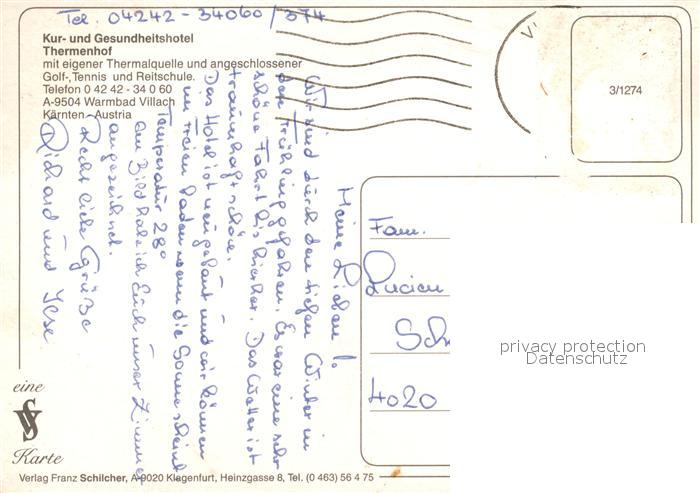 Tel. 04242 - 34060 / 374
Kur- und Gesundheitshotel
Thermenhof
mit eigener Thermalquelle und angeschlossener
Golf-, Tennis und Reitschule.
Telefon 0 42 42 - 34 0 60
A-9504 Warmbad Villach
Kärnten - Austria
3/1274
Meine Lieben!
Wir sind durch den tiefen Winter in
den Frühling gefahren. Es war eine sehr
schöne Fahrt bis hierher. Das Wetter ist
traumhaft schön.
Das Hotel ist neu gebaut und wir können
im Freien baden wenn die Sonne scheint
Temperatur 28°
Am Bild habe ich Euch unser Zimmer
angezeichnet.
Recht liebe Grüße
Richard und Ilse
Fam.
Lucien
Sch
4020
privacy protection
Datenschutz
eine
VS
Karte
Verlag Franz Schilcher, A-9020 Klagenfurt, Heinzgasse 8, Tel. (0 463) 56 4 75